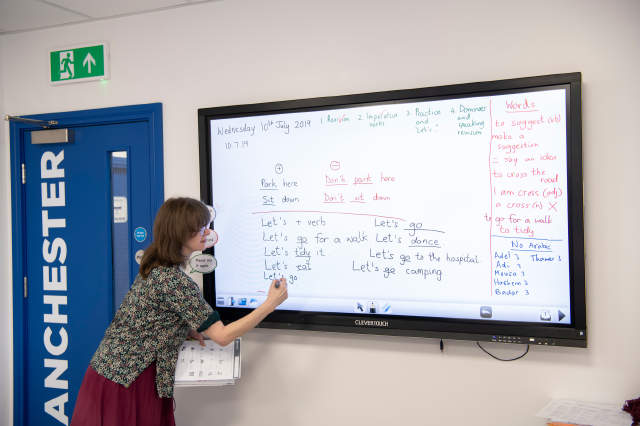 MANCHESTER
Wednesday 10th July 2019
10.7.19
1. Revision
2. Imperative verbs
3. Practice and "Let's.."
4. Dominoes and speaking revision
Park here
Don't park here
Sit down
Don't sit down
Let's + verb
Let's go
Let's go for a walk
Let's dance
Let's tidy it
Let's go to the hospital
Let's eat
Let's go camping
Let's go
Words
to suggest (vb)
make a
suggestion
= say an idea
to cross the
road
I am cross (adj)
a cross (n) X
to go for a walk
to tidy
No Arabic
Adel 3
Thamer 3
Adi 3
Mousa 3
Hashem 3
Bader 3
CLEVERTOUCH